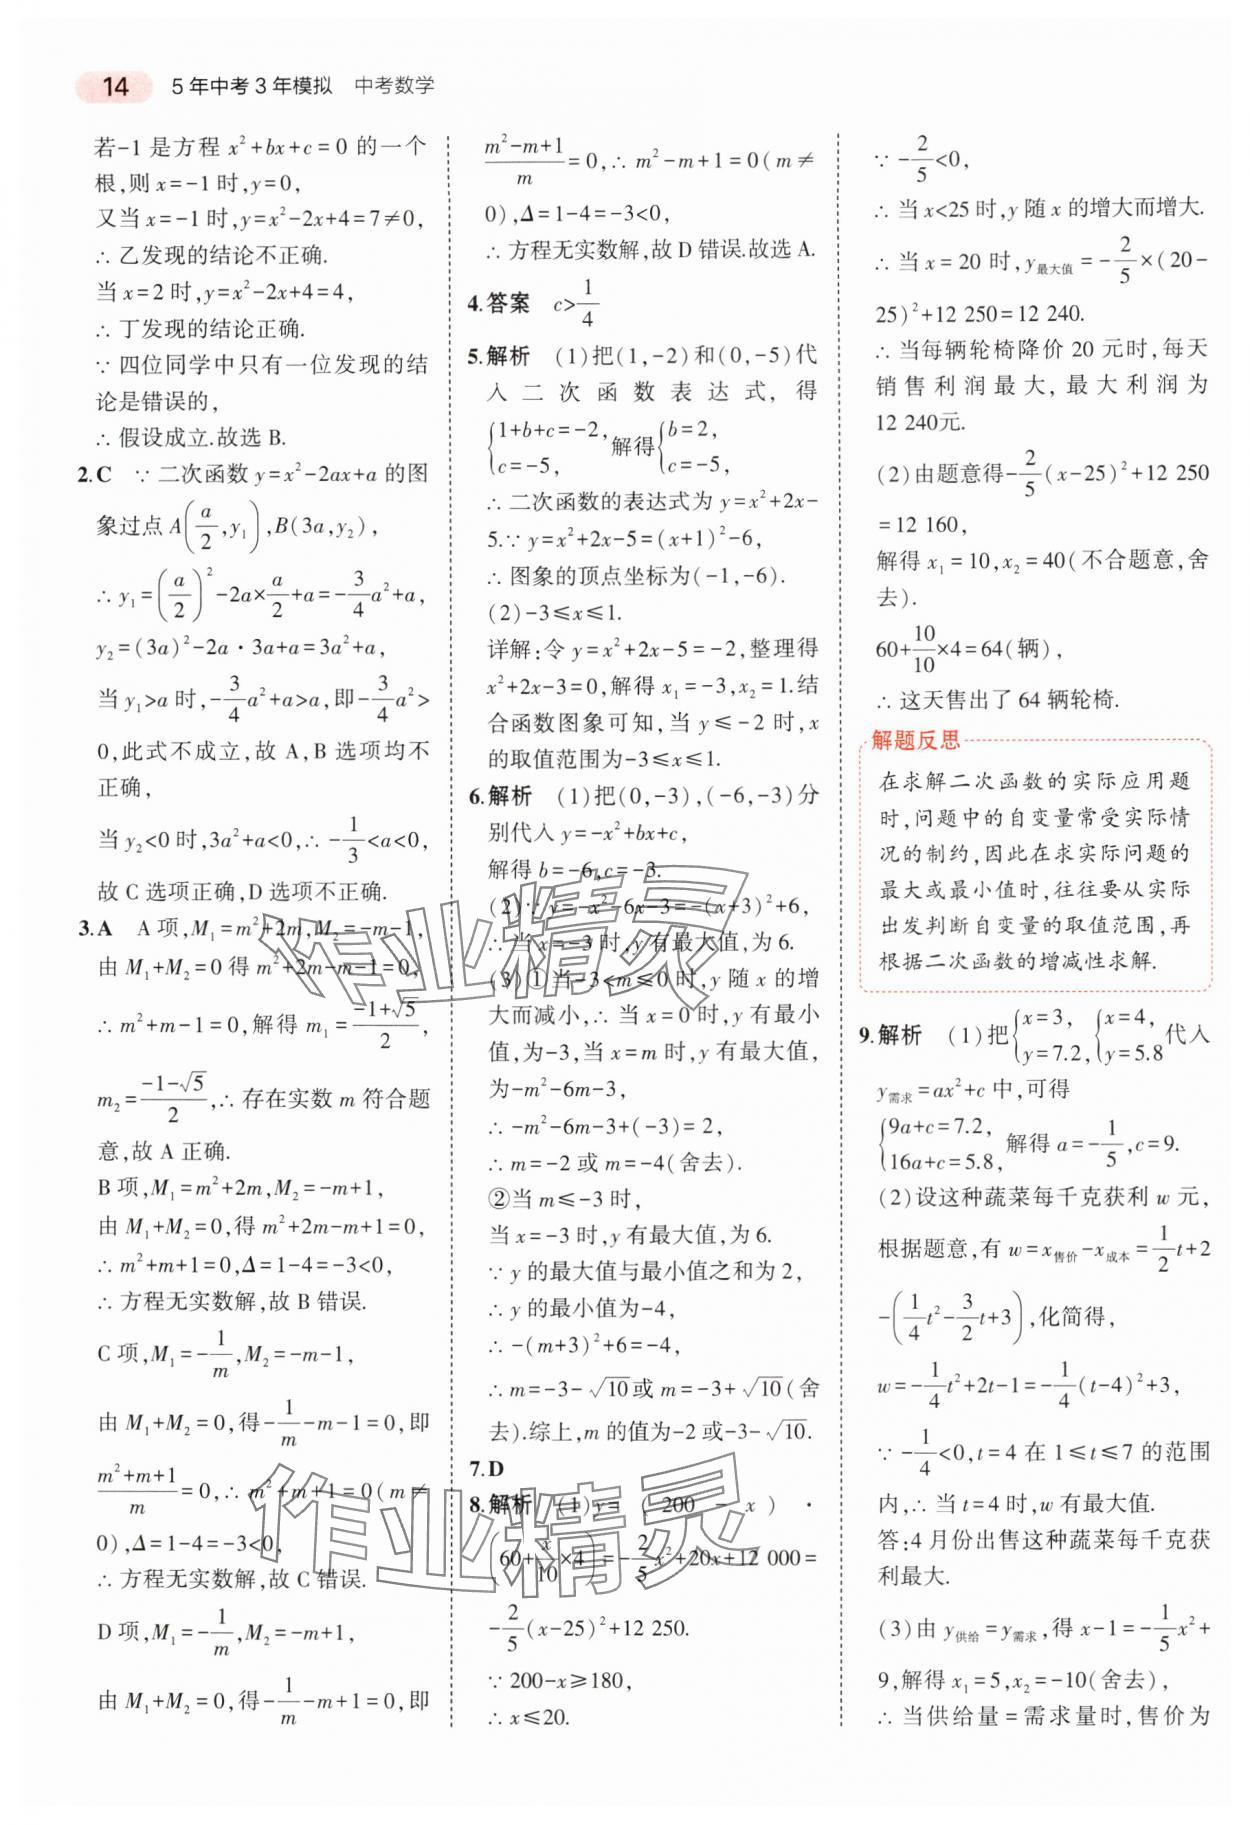 14 5年中考3年模拟 中考数学
若-1是方程 x²+bx+c=0 的一个
根,则x=-1时,y=0,
又当x=-1时,y=x²-2x+4=7≠0,
∴乙发现的结论不正确.
当x=2时,y=x²-2x+4=4,
∴丁发现的结论正确.
∵四位同学中只有一位发现的结
论是错误的,
∴假设成立.故选B.
2.C ∵二次函数y=x²-2ax+a的图
象过点A(a/2,y₁),B(3a,y₂),
∴y₁=(a/2)²-2a×a/2+a=-3/4a²+a,
y₂=(3a)²-2a·3a+a=3a²+a,
当y₁>a时,-3/4a²+a>a,即-3/4a²>
0,此式不成立,故A,B选项均不
正确,
当y₂<0时,3a²+a<0,∴-1/3<a<0,
故C选项正确,D选项不正确.
3.A A项,M₁=m²+2m,M₂=-m-1,
由M₁+M₂=0得m²+2m-m-1=0,
∴m²+m-1=0,解得m₁=(-1+√5)/2,
m₂=(-1-√5)/2,∴存在实数m符合题
意,故A正确.
B项,M₁=m²+2m,M₂=-m+1,
由M₁+M₂=0,得m²+2m-m+1=0,
∴m²+m+1=0,Δ=1-4=-3<0,
∴方程无实数解,故B错误.
C项,M₁=-1/m,M₂=-m-1,
由M₁+M₂=0,得-1/m-m-1=0,即
(m²+m+1)/m=0,∴m²+m+1=0(m≠
0),Δ=1-4=-3<0,
∴方程无实数解,故C错误.
D项,M₁=-1/m,M₂=-m+1,
由M₁+M₂=0,得-1/m-m+1=0,即
(m²-m+1)/m=0,∴m²-m+1=0(m≠
0),Δ=1-4=-3<0,
∴方程无实数解,故D错误.故选A.
4.答案 c>1/4
5.解析 (1)把(1,-2)和(0,-5)代
入二次函数表达式,得
{1+b+c=-2, c=-5, 解得{b=2, c=-5,
∴二次函数的表达式为y=x²+2x-
5.∵y=x²+2x-5=(x+1)²-6,
∴图象的顶点坐标为(-1,-6).
(2)-3≤x≤1.
详解:令y=x²+2x-5=-2,整理得
x²+2x-3=0,解得x₁=-3,x₂=1.结
合函数图象可知,当y≤-2时,x
的取值范围为-3≤x≤1.
6.解析 (1)把(0,-3),(-6,-3)分
别代入y=-x²+bx+c,
解得b=-6,c=-3.
(2)∵y=-x²-6x-3=-(x+3)²+6,
∴当x=-3时,y有最大值,为6.
(3)①当-3<m≤0时,y随x的增
大而减小,∴当x=0时,y有最小
值,为-3,当x=m时,y有最大值,
为-m²-6m-3,
∴-m²-6m-3+(-3)=2,
∴m=-2或m=-4(舍去).
②当m≤-3时,
当x=-3时,y有最大值,为6.
∵y的最大值与最小值之和为2,
∴y的最小值为-4,
∴-(m+3)²+6=-4,
∴m=-3-√10或m=-3+√10(舍
去).综上,m的值为-2或-3-√10.
7.D
8.解析 (1)y=(200-x)·
(60+x/10×4)=-2/5x²+20x+12 000=
-2/5(x-25)²+12 250.
∵200-x≥180,
∴x≤20.
∵-2/5<0,
∴当x<25时,y随x的增大而增大.
∴当x=20时,y最大值=-2/5×(20-
25)²+12 250=12 240.
∴当每辆轮椅降价20元时,每天
销售利润最大,最大利润为
12 240元.
(2)由题意得-2/5(x-25)²+12 250
=12 160,
解得x₁=10,x₂=40(不合题意,舍
去).
60+10/10×4=64(辆),
∴这天售出了64辆轮椅.
解题反思
在求解二次函数的实际应用题
时,问题中的自变量常受实际情
况的制约,因此在求实际问题的
最大或最小值时,往往要从实际
出发判断自变量的取值范围,再
根据二次函数的增减性求解.
9.解析 (1)把{x=3, y=7.2, {x=4, y=5.8代入
y需求=ax²+c中,可得
{9a+c=7.2, 16a+c=5.8, 解得a=-1/5,c=9.
(2)设这种蔬菜每千克获利w元,
根据题意,有w=x售价-x成本=1/2t+2
-(1/4t²-3/2t+3),化简得,
w=-1/4t²+2t-1=-1/4(t-4)²+3,
∵-1/4<0,t=4在1≤t≤7的范围
内,∴当t=4时,w有最大值.
答:4月份出售这种蔬菜每千克获
利最大.
(3)由y供给=y需求,得x-1=-1/5x²+
9,解得x₁=5,x₂=-10(舍去),
∴当供给量=需求量时,售价为
作业精灵
作业精灵